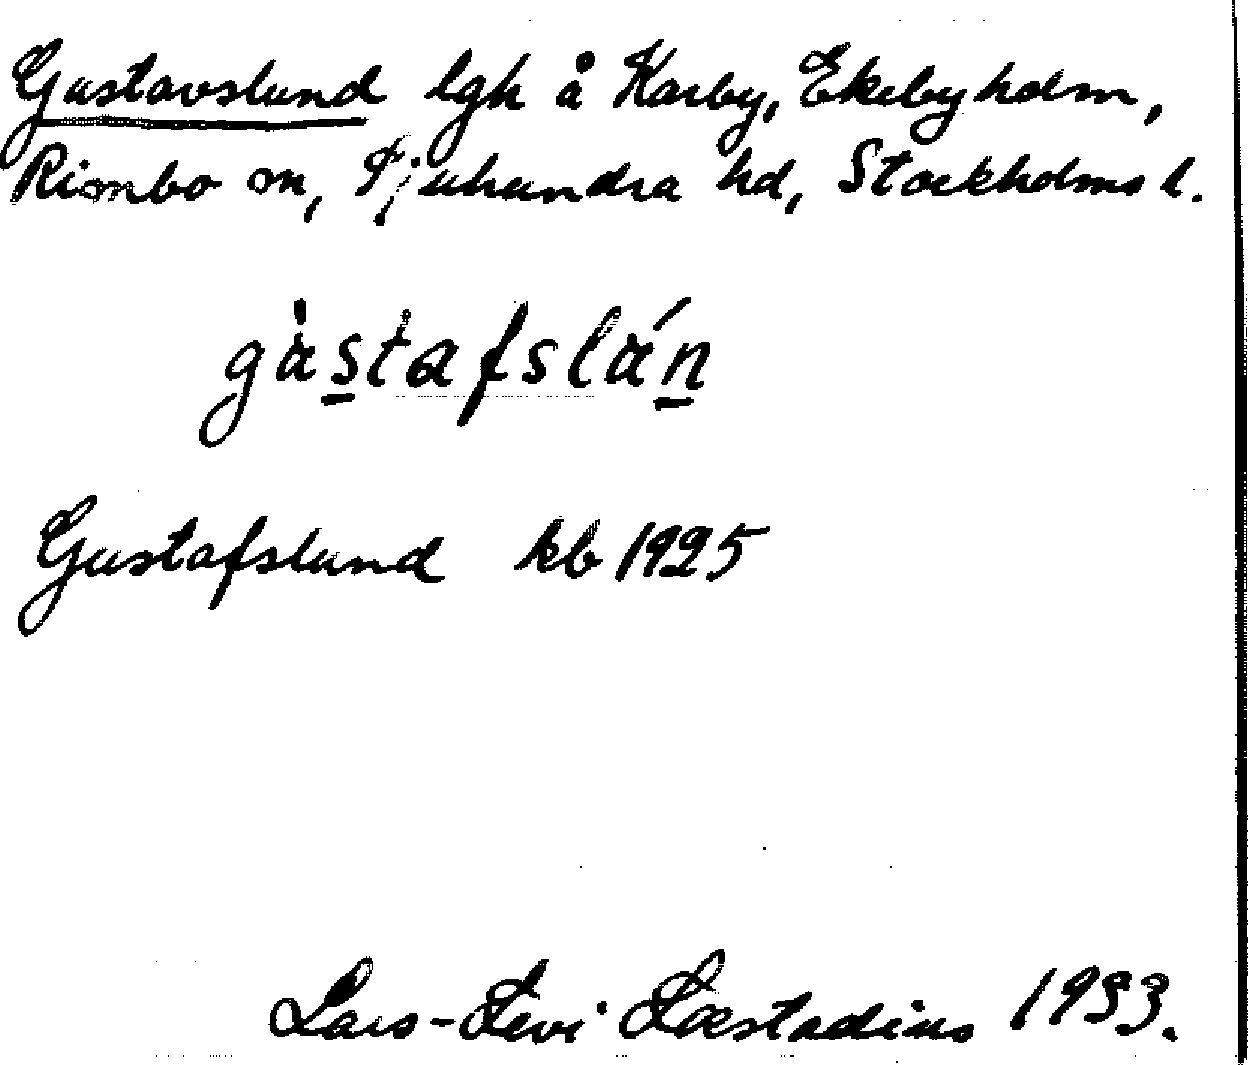 Gustavslund lgh å Karby, Ekebyholm,
Rimbo sn, Sjuhundra hd, Stockholms l.
gàstafslán
Gustafslund kb 1925
Lars-Levi Læstadius 1933.